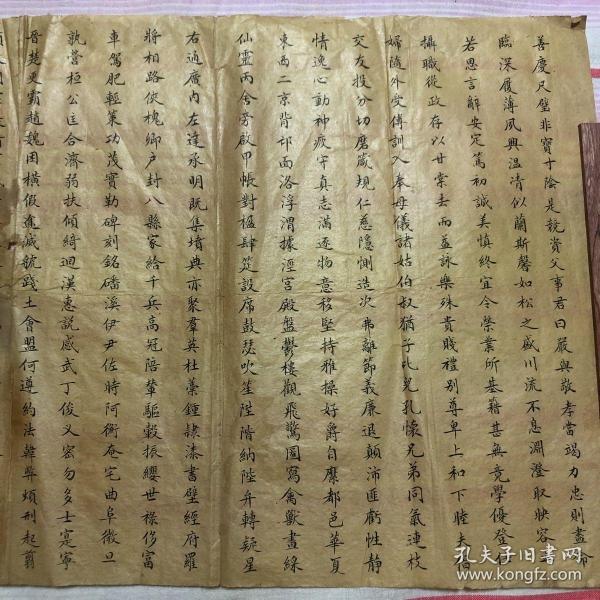 善慶尺璧非寶寸陰是競資父事君曰嚴與敬孝當竭力忠則盡命
臨深履薄夙興溫清似蘭斯馨如松之盛川流不息淵澄取映容
若思言辭安定篤初誠美慎終宜令榮業所基籍甚無竟學優登仕
攝職從政存以甘棠去而益詠樂殊貴賤禮別尊卑上和下睦夫唱
婦隨外受傅訓入奉母儀諸姑伯叔猶子比兒孔懷兄弟同氣連枝
交友投分切磨箴規仁慈隱惻造次弗離節義廉退顛沛匪虧性靜
情逸心動神疲守真志滿逐物意移堅持雅操好爵自縻都邑華夏
東西二京背邙面洛浮渭據涇宮殿盤鬱樓觀飛驚圖寫禽獸畫綵
仙靈丙舍旁啟甲帳對楹肆筵設席鼓瑟吹笙陞階納陛弁轉疑星
右通廣內左達承明既集墳典亦聚羣英杜藁鍾隸漆書壁經府羅
將相路俠槐卿戶封八縣家給千兵高冠陪輦驅轂振纓世祿侈富
車駕肥輕策功茂實勒碑刻銘磻溪伊尹佐時阿衡奄宅曲阜微旦
孰營桓公匡合濟弱扶傾綺迴漢惠說感武丁俊乂密勿多士寔寧
晉楚更霸趙魏困橫假途滅虢踐土會盟何遵約法韓弊煩刑起翦
孔夫子旧书网
www.kongfz.com